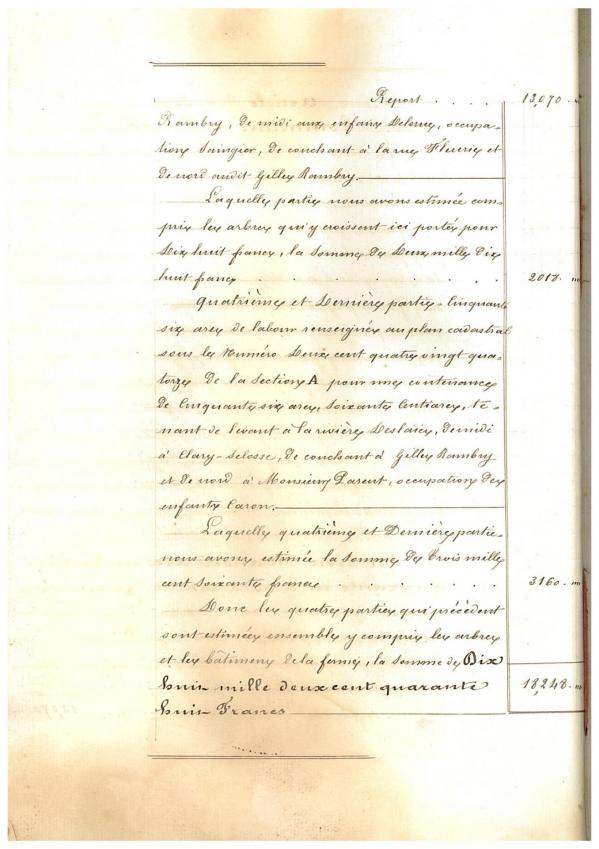 Report . . . . 13,070. "
Rambry, de midi aux enfans Delerue, occupa-
tion Saingier, de couchant à la rue Fleurie et
de nord audit Gilles Rambry.
Laquelle partie nous avons estimée com-
pris les arbres qui y croissent ici portés pour
Dix huit francs, la somme de Deux mille dix
huit francs . . . . . . . . 2018. "
Quatrième et Dernière partie - Cinquante
six ares de labour renseignée au plan cadastral
sous le Numéro Deux cent quatre vingt qua-
torze de la section A pour une contenance
de Cinquante six ares, soixante Centiares, te-
nant de levant à la rivière Deslaies, de midi
à Clary-Selosse, de couchant à Gilles Rambry
et de nord à Monsieur Parent, occupation des
enfants Caron.
Laquelle quatrième et Dernière partie
nous avons estimée la somme de Trois mille
cent soixante francs . . . . . . 3160. "
Donc les quatre parties qui précèdent
sont estimées ensemble y compris les arbres
et les bâtimens de la ferme, la somme de Dix
huit mille deux cent quarante 18,248. "
huit Francs